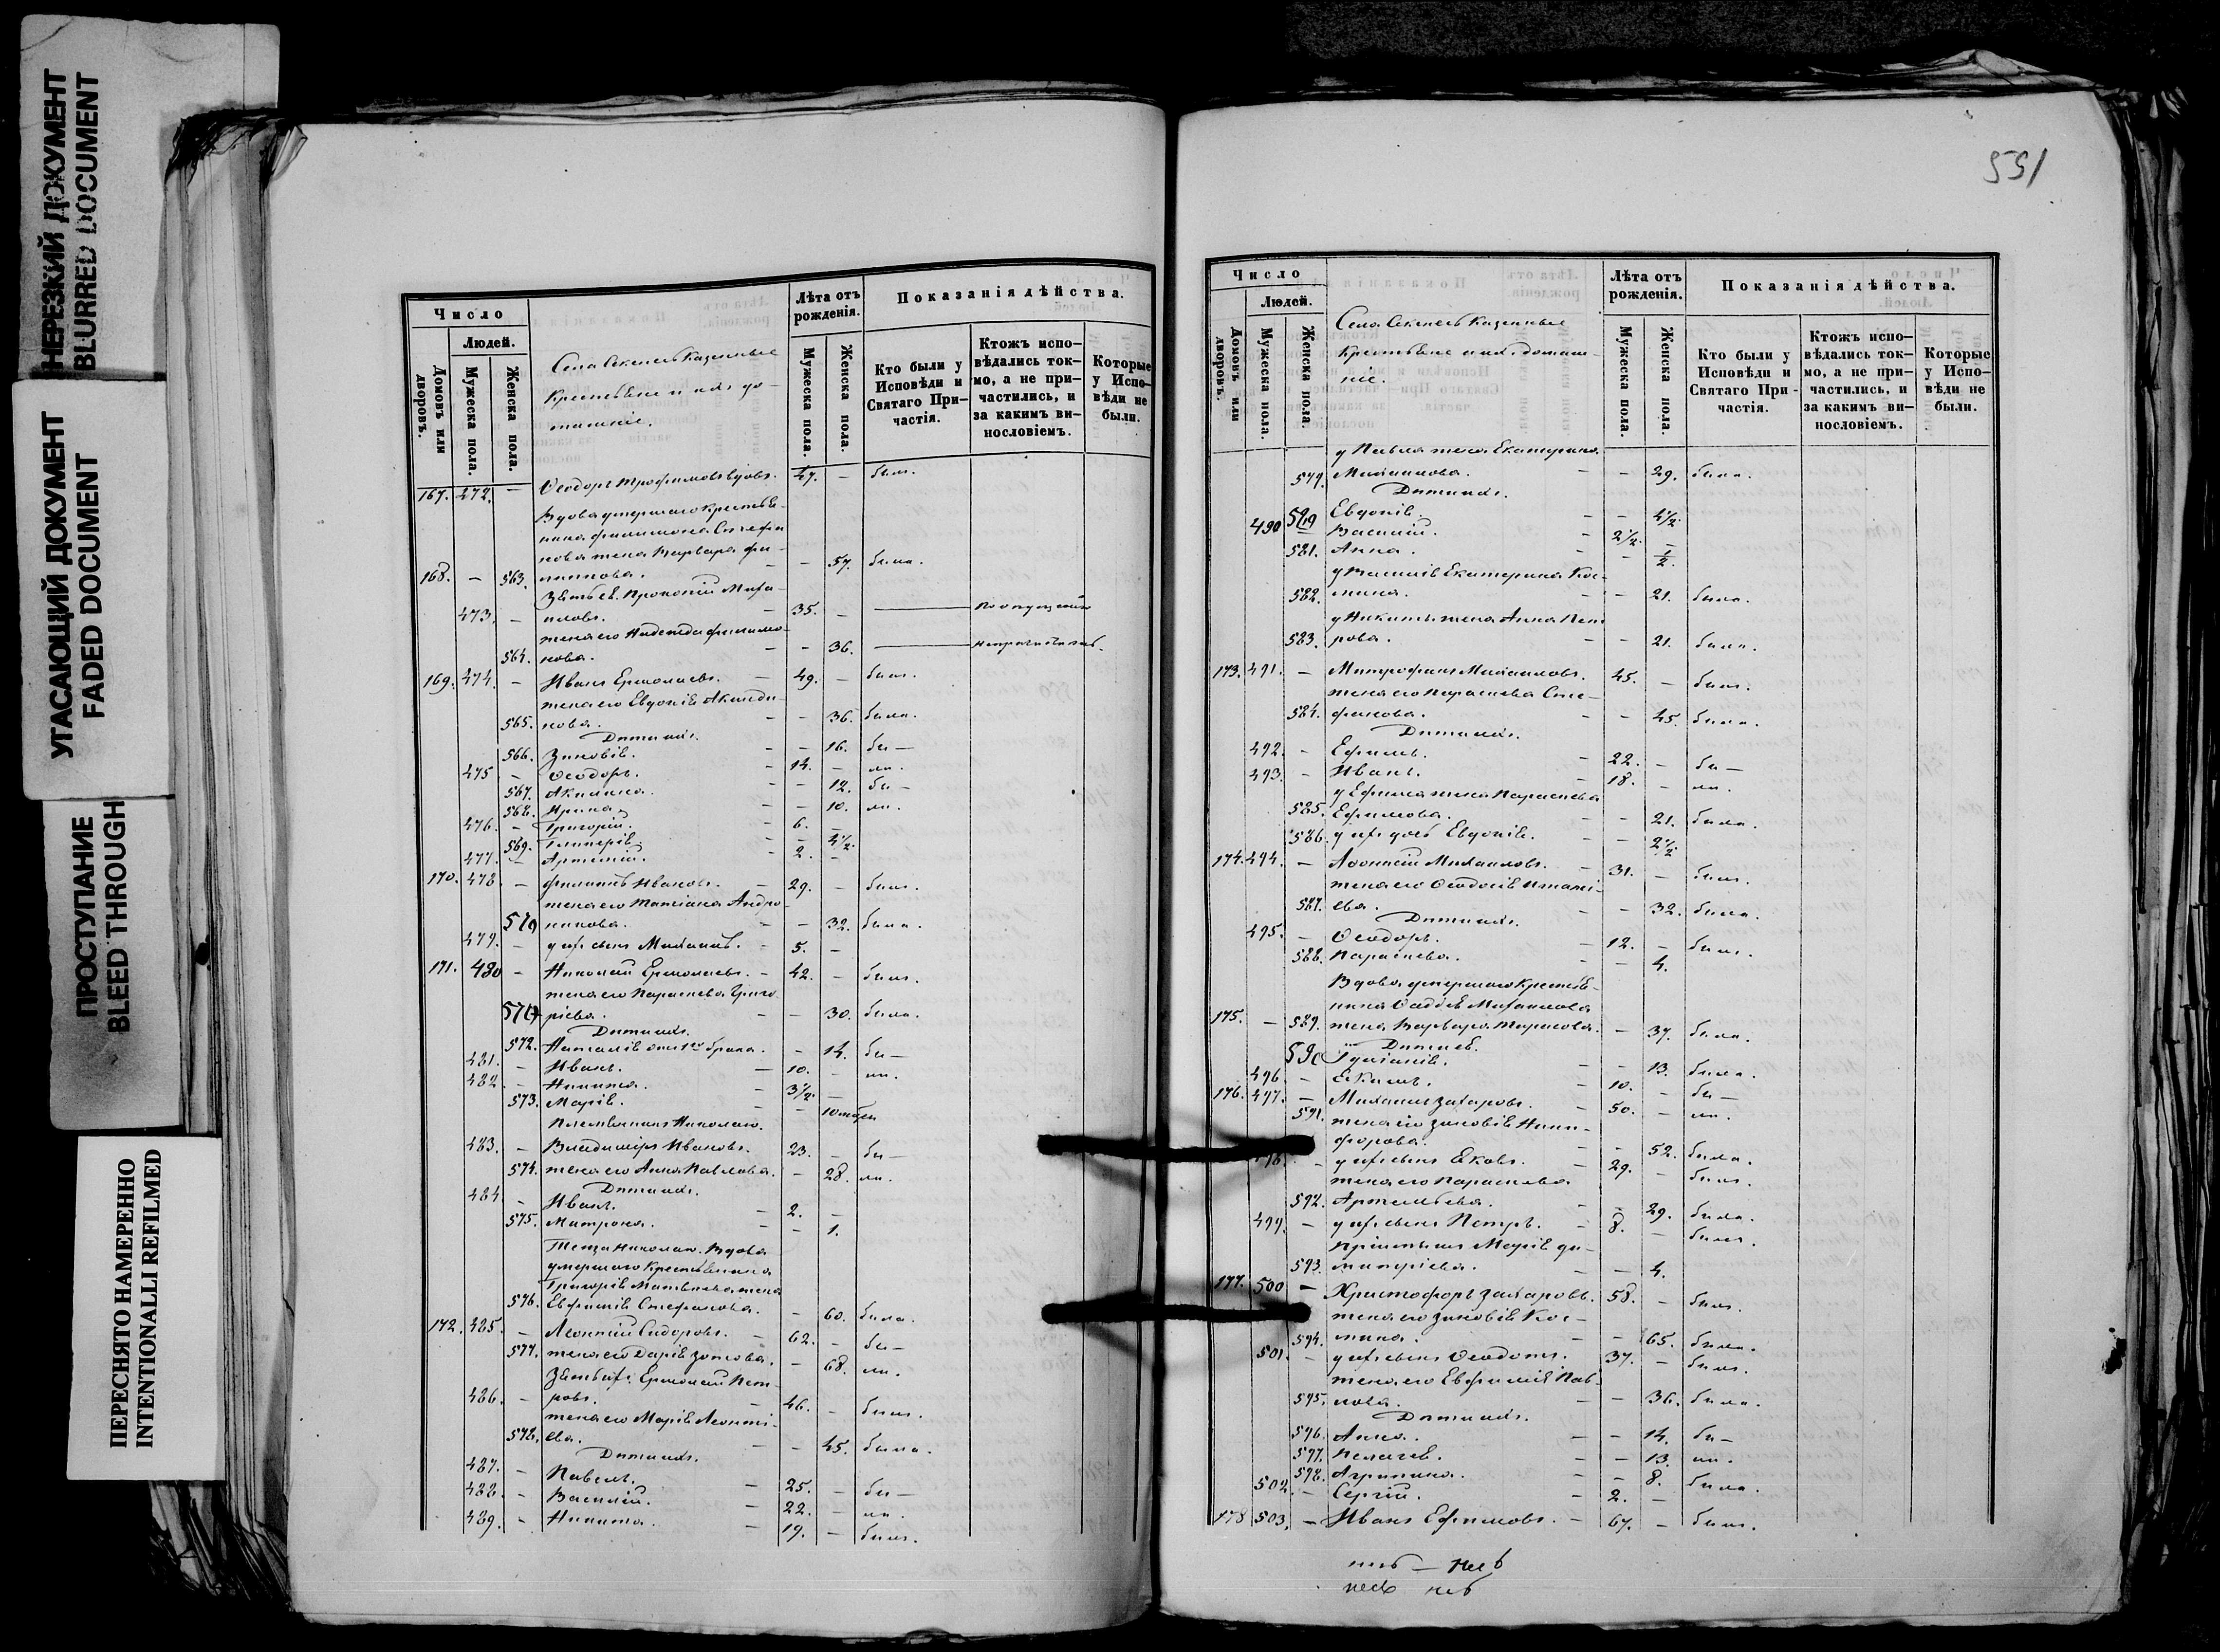 НЕРЕЗКИЙ ДОКУМЕНТ
BLURRED DOCUMENT
УГАСАЮЩИЙ ДОКУМЕНТ
FADED DOCUMENT
ПРОСТУПАНИЕ
BLEED THROUGH
ПЕРЕСНЯТО НАМЕРЕННО
INTENTIONALLI REFILMED
Число
Людей.
Домовъ или дворовъ.
Мужеска пола.
Женска пола.
Казенные
Крестьяне и ихъ до-
машніе.
Лѣта отъ рожденія.
Мужеска пола.
Женска пола.
Показанія дѣйства.
Кто были у Исповѣди и Святаго Причастія.
Ктожъ исповѣдались токмо, а не причастились, и за какимъ винословіемъ.
Которые у Исповѣди не были.
167. 472. — Ѳеодоръ Трофимовъ вдовъ. 47. — былъ.
Вдова умершаго крестья-
нина Филимона Стефа
нова жена Варвара Фи-
168. — 563. липпова. — 57. была.
Зять ея Прокопій Миха
473. — иловъ. 35. — по опущенію
жена его Надежда Филимо-
564. нова. — 36.
169. 474. — Иванъ Ермолаевъ. 49. — былъ.
жена его Евдокія Акинди-
565. нова. — 36. была.
Дѣти ихъ.
566. Зиновія. — 16. бы—
475 — Ѳеодоръ. 14. — ли.
567. Акилина. — 12. бы—
568. Ирина — 10. ли.
476. — Григорій. 6. —
569. Гликерія — 4½.
477. — Артемій. 2. —
170. 478. — Филиппъ Ивановъ. 29. — былъ.
жена его Татіана Андро-
570 никова. — 32. была.
479. — у нихъ сынъ Михаилъ. 5. —
171. 480 — Николай Ермолаевъ. 42. — былъ.
жена его Параскева Григо
571 ріева. — 30. была.
Дѣти ихъ.
572. Наталія отъ 1го брака. — 14. бы—
481. — Иванъ. 10. — ли.
482 — Никита. 3½. —
573. Марія. — 10 мѣсяц
Племянникъ Николаю.
483. — Владиміръ Ивановъ. 23. — бы—
574. жена его Анна Павлова. — 28. ли.
Дѣти ихъ.
484. — Иванъ. 2. —
575. Матрона. — 1.
Теща Николаю. Вдова
умершаго Крестьянина
Григорія Матвѣева жена
576. Евфимія Стефанова. — 60. была.
172. 485. — Леонтій Сидоровъ. 62. — бы—
577. жена его Дарія Зотова. — 68. ли.
Зять ихъ Ермолай Пет-
486. — ровъ. 46. — былъ.
жена его Марія Леонті-
578. ева. — 45. была.
Дѣти ихъ.
487. — Павелъ. 25. — бы—
488. — Василій. 22. — ли.
489. — Никита. 19. — былъ.
551
Число
Людей.
Домовъ или дворовъ.
Мужеска пола.
Женска пола.
Казенные
Крестьяне и ихъ домаш-
ніе.
Лѣта отъ рожденія.
Мужеска пола.
Женска пола.
Показанія дѣйства.
Кто были у Исповѣди и Святаго Причастія.
Ктожъ исповѣдались токмо, а не причастились, и за какимъ винословіемъ.
Которые у Исповѣди не были.
у Павла жена Екатерина
579. Михаилова. — 29. была.
Дѣти ихъ.
Евдокія. — 4½.
490 — Василій. 2½. —
581. Анна. — ½.
у Василія Екатерина Кос-
582. мина. — 21. была.
у Никиты жена Анна Пет
583. рова. — 21. была.
173. 491. — Митрофанъ Михаиловъ. 45. — былъ.
жена его Параскева Сте-
584. фанова. — 45. была.
Дѣти ихъ.
492. — Ефимъ. 22. — бы—
493. — Иванъ. 18. — ли.
у Ефима жена Параскева
585. Ефимова. — 21. была.
586. у нихъ дочь Евдокія. — 2½
174. 494. — Леонтій Михаиловъ. 31. — былъ.
жена его Ѳеодосія Игнаті-
587. ева. — 32. была.
Дѣти ихъ.
495. — Ѳеодоръ. 12. — былъ.
588. Параскева. — 4.
Вдова умершаго Крестья-
нина Ѳаддея Михаилова
175. — 589. жена Варвара Тарасова. — 37. была.
Дѣти ея.
590 Іуліанія. — 13. была.
496 — Екимъ. 10. — бы—
176. 497. — Михаилъ Захаровъ. 50. — ли.
591. жена его Зиновія Ники-
форова. — 52. была.
498. — у нихъ сынъ Яковъ. 29. — былъ.
жена его Параскева
592. Артемьева. — 29. была.
499. — у нихъ сынъ Петръ. 8. — былъ.
Пріемышъ Марія Ди-
593. митріева. — 4.
177. 500 — Христофоръ Захаровъ. 58. — былъ.
жена его Зиновія Кос-
594. мина. — 65. была.
501. — у нихъ сынъ Ѳеодотъ. 37. — былъ.
жена его Евфимія Пав-
595. лова. — 36. была.
Дѣти ихъ.
596. Анна. — 14. бы—
597. Пелагея. — 13. ли.
598. Агрипина. — 8. была.
502 — Сергій. 2. —
178 503. — Иванъ Ефимовъ. 67. — былъ.